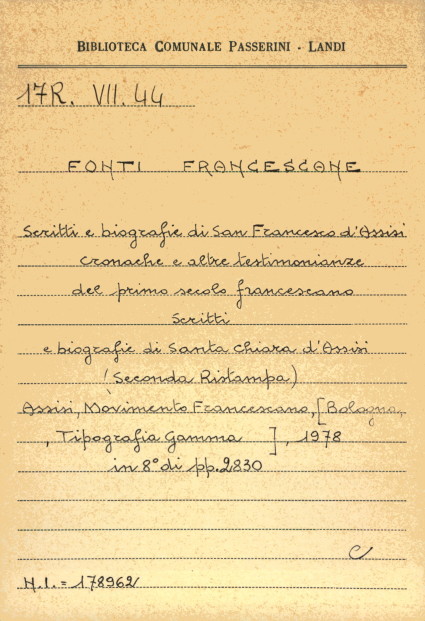 BIBLIOTECA COMUNALE PASSERINI - LANDI
17R. VII. 44
FONTI FRANCESCANE
Scritti e biografie di San Francesco d'Assisi
cronache e altre testimonianze
del primo secolo francescano
Scritti
e biografie di Santa Chiara d'Assisi
(Seconda Ristampa)
Assisi, Movimento Francescano, [Bologna,
, Tipografia Gamma ], 1978
in 8° di pp. 2830
C
N.I. = 178962